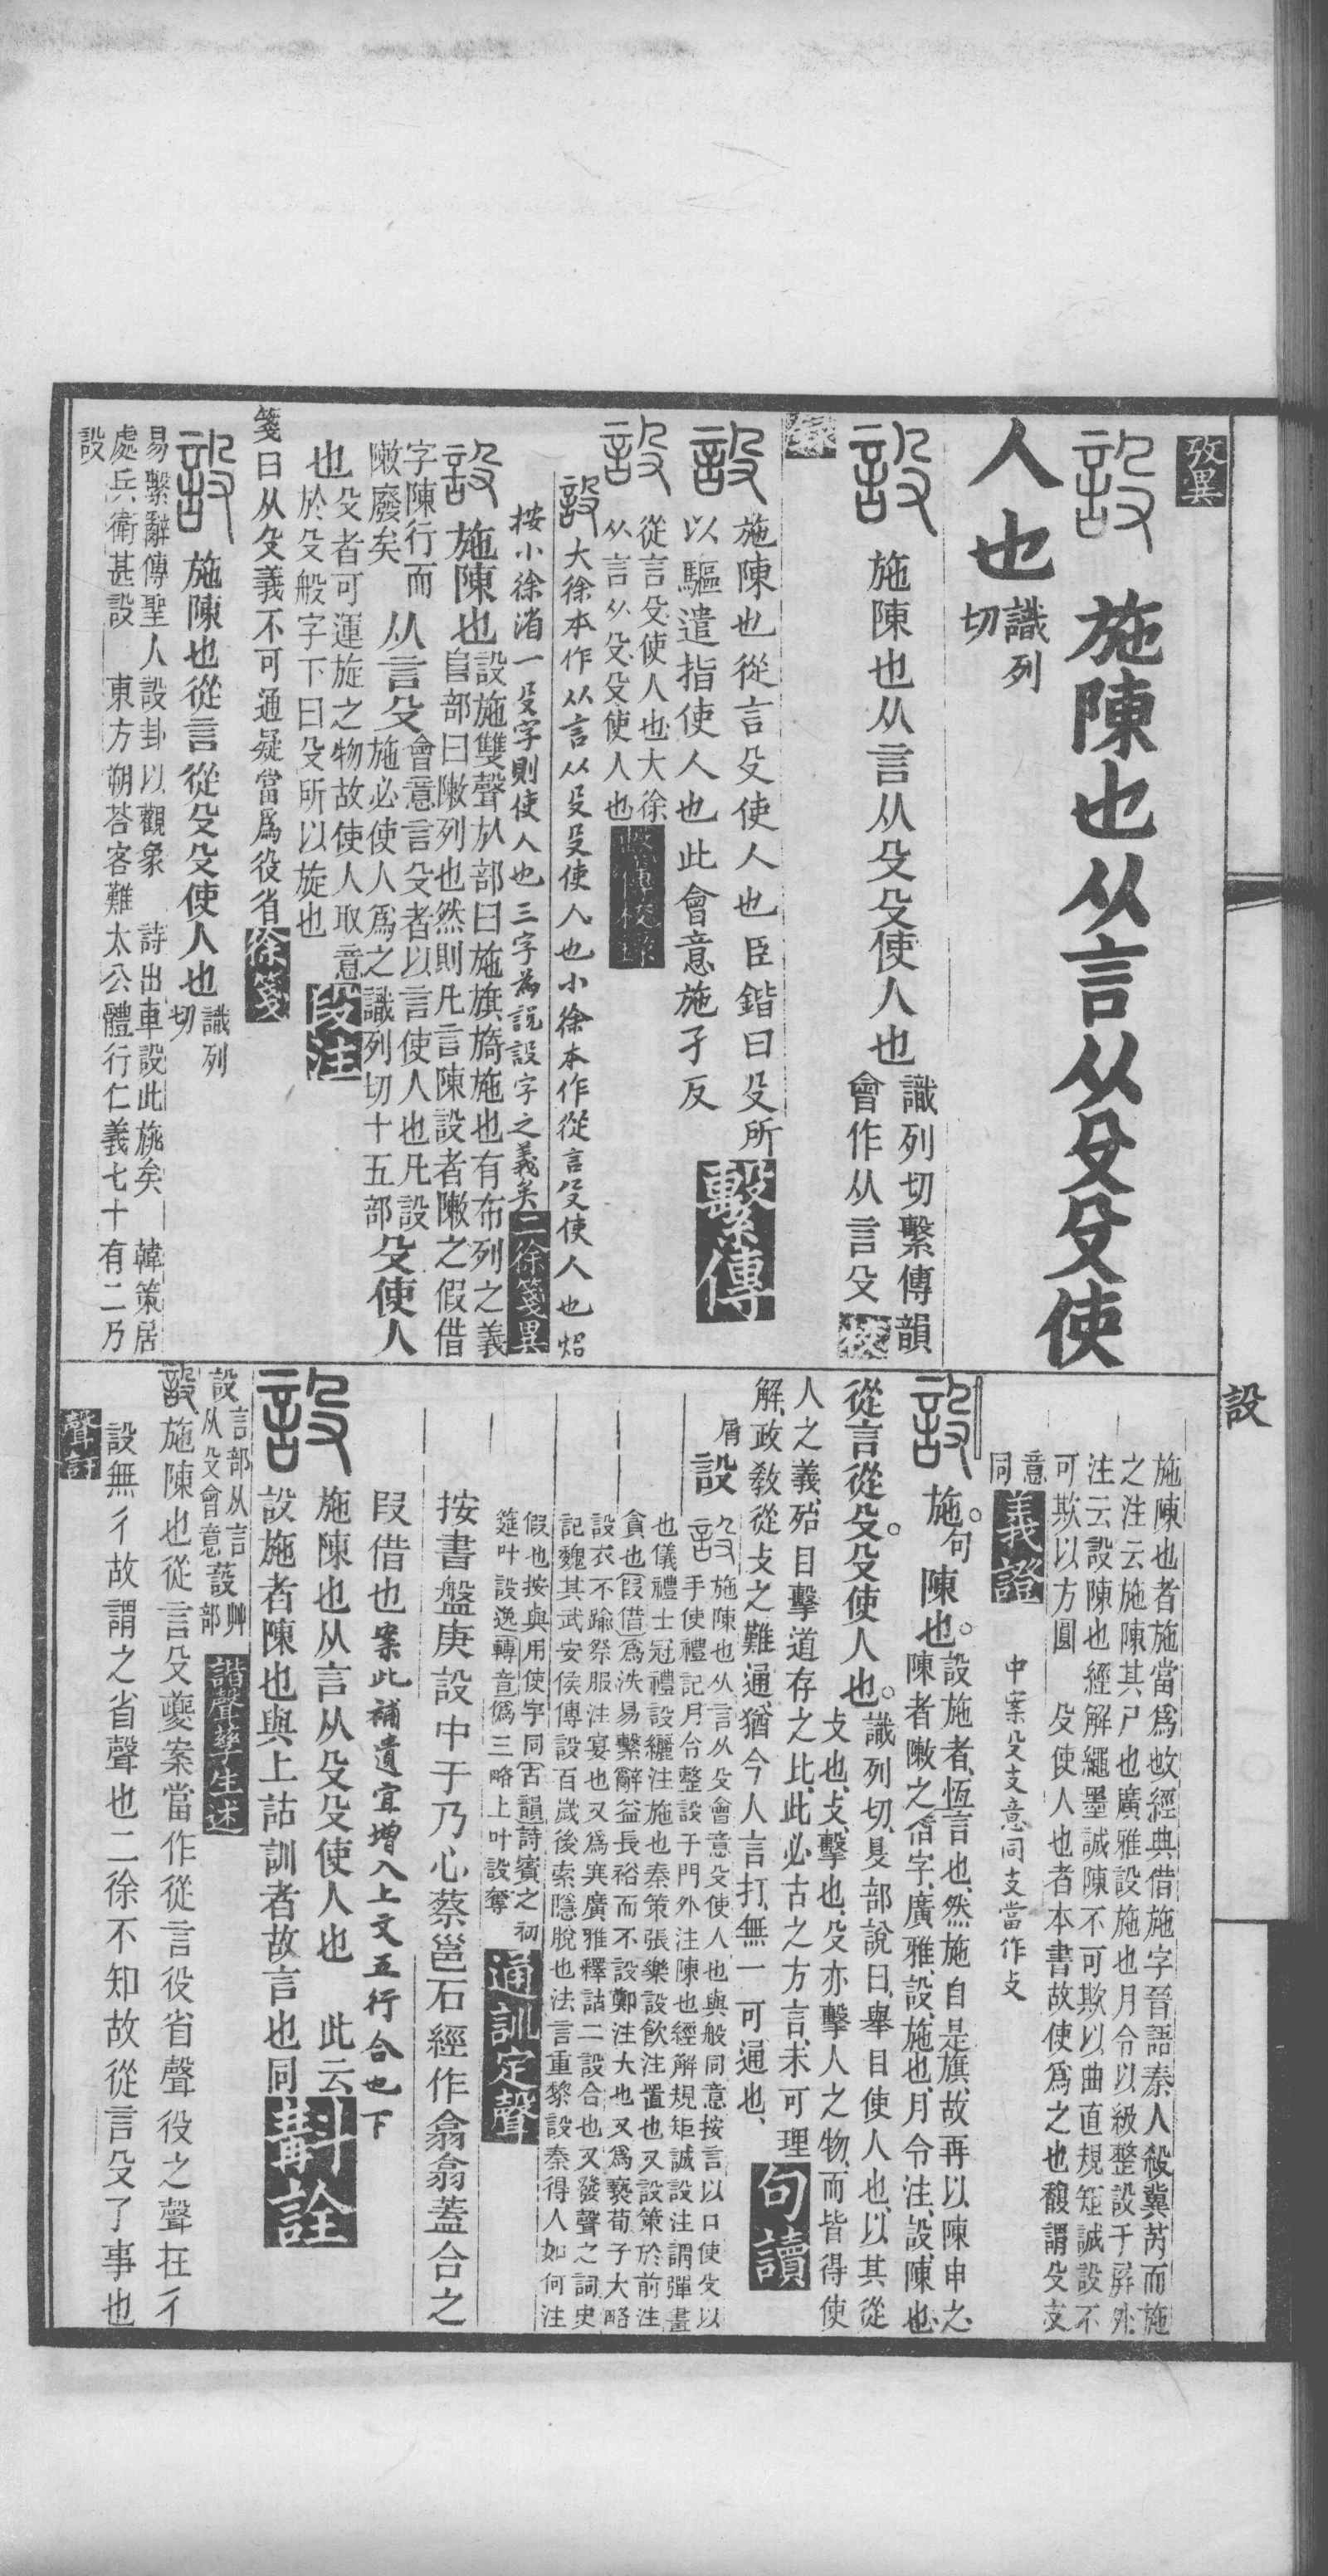 攷異
設 施陳也从言从殳殳使
人也 識列
切
設 施陳也从言从殳殳使人也 識列切繫傳韻
會作从言殳 校
錄
設 施陳也從言殳使人也臣鍇曰殳所
以驅遣指使人也此會意施孑反 繫傳
設 從言殳使人也大徐
从言从殳殳使人也
設 大徐本作从言从殳殳使人也小徐本作從言殳使人也炤
按小徐消一殳字則使人也三字為説設字之義矣 二徐箋異
設 施陳也 設施雙聲㫃部曰施旗旖施也有布列之義
𨸏部曰敶列也然則凡言陳設者敶之假借
字陳行而
敶廢矣 从言殳 會意言殳者以言使人也凡設
施必使人爲之識列切十五部 殳使人
也 殳者可運旋之物故使人取意
於殳般字下曰殳所以旋也 段注
箋曰从殳義不可通疑當爲役省 徐箋
設 施陳也從言從殳殳使人也 識列
切
易繫辭傳聖人設卦以觀象 詩出車設此旐矣 韓策居
處兵衛甚設 東方朔荅客難太公體行仁義七十有二乃
設
設
施陳也者施當爲㪑經典借施字晉語秦人殺冀芮而施
之注云施陳其尸也廣雅設施也月令以級整設于屏外
注云設陳也經解繩墨誠陳不可欺以曲直規矩誠設不
可欺以方圓 殳使人也者本書故使爲之也馥謂殳支
意
同 義證 中案殳支意同支當作攴
設 施。句陳也。設施者、恆言也、然施自是旗、故再以陳申之、
陳者敶之借字、廣雅、設、施也、月令注、設、陳也、
從言從殳。殳使人也。識列切、夏部說曰、舉目使人也、以其從
攴也、攴、擊也、殳亦擊人之物、而皆得使
人之義、殆目擊道存之比、此必古之方言、未可理
解、政敎從攴之難通、猶今人言打、無一可通也、 句讀
屑 設 設 施陳也从言从殳會意殳使人也與般同意按言以口使殳以
手使禮記月令整設于門外注陳也經解規矩誠設注謂彈畫
也儀禮士冠禮設纚注施也秦策張樂設飲注置也又設策於前注
貪也 叚借 爲洗易繫辭益長裕而不設鄭注大也又爲褻荀子大略
設衣不踰祭服注宴也又爲㢲廣雅釋詁二設合也又發聲之詞史
記魏其武安侯傳設百歲後索隱脫也法言重黎設秦得人如何注
假也按與用使字同 古韻 詩賓之初
筵叶設逸 轉音 僞三略上叶設奪 通訓定聲
按書盤庚設中于乃心蔡邕石經作翕翕蓋合之
叚借也案此補遺宜增入上文五行合也下
設 施陳也从言从殳殳使人也 此云
設施者陳也與上詁訓者故言也同 斠詮
設 言部从言
从殳會意 蔎 艸
部 諧聲孳生述
設 施陳也從言殳夔案當作從言役省聲役之聲在彳
設無彳故謂之省聲也二徐不知故從言殳了事也
聲訂